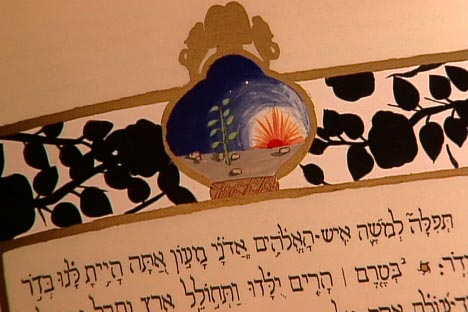 תְּפִלָּה לְמֹשֶׁה אִישׁ־הָאֱלֹהִים אֲדֹנָי מָעוֹן אַתָּה הָיִיתָ לָּנוּ בְּדֹר
וָדֹר: ב בְּטֶרֶם | הָרִים יֻלָּדוּ וַתְּחוֹלֵל אֶרֶץ